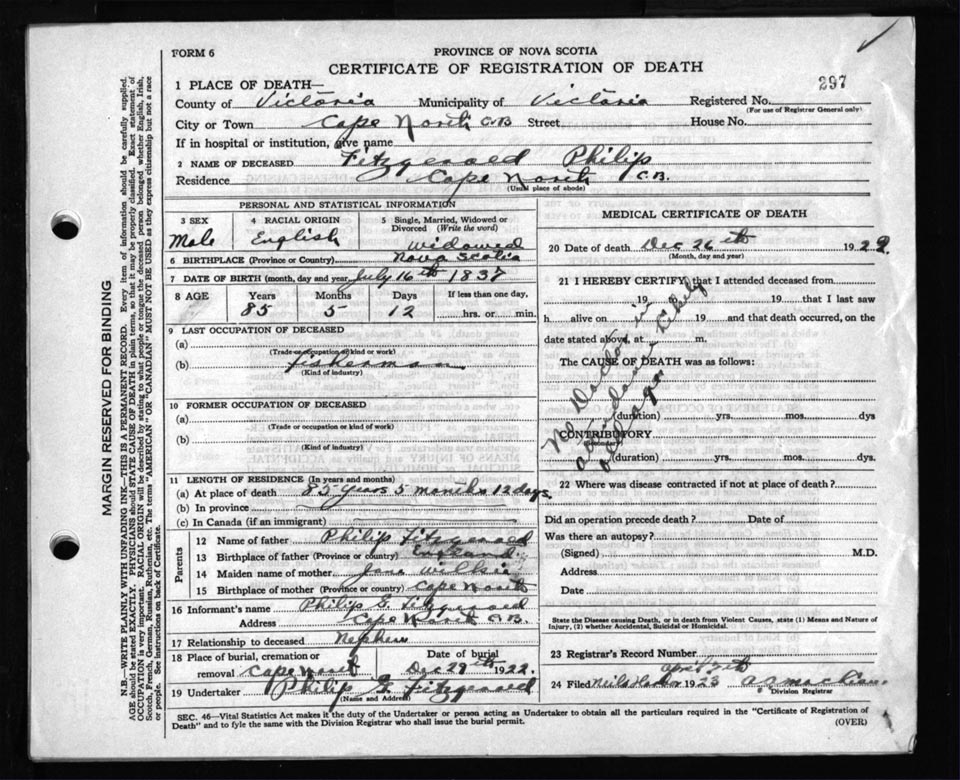 297
FORM 6
PROVINCE OF NOVA SCOTIA
CERTIFICATE OF REGISTRATION OF DEATH
1 PLACE OF DEATH—
County of Victoria Municipality of Victoria Registered No.
(For use of Registrar General only)
City or Town Cape North C.B Street House No.
If in hospital or institution, give name
2 NAME OF DECEASED Fitzgerald Philip
Residence Cape North C.B.
(Usual place of abode)
PERSONAL AND STATISTICAL INFORMATION
3 SEX
Male
4 RACIAL ORIGIN
English
5 Single, Married, Widowed or
Divorced (Write the word)
Widowed
6 BIRTHPLACE (Province or Country) Nova Scotia
7 DATE OF BIRTH (month, day and year) July 16th 1837
8 AGE Years Months Days If less than one day,
85 5 12 hrs. or min.
9 LAST OCCUPATION OF DECEASED
(a)
(Trade or occupation or kind or work)
(b) fisherman
(Kind of industry)
10 FORMER OCCUPATION OF DECEASED
(a)
(Trade or occupation or kind of work)
(b)
(Kind of industry)
11 LENGTH OF RESIDENCE (In years and months)
(a) At place of death 85 years 5 months 12 days.
(b) In province
(c) In Canada (if an immigrant)
Parents
12 Name of father Philip Fitzgerald
13 Birthplace of father (Province or country) England
14 Maiden name of mother Jane Wilkie
15 Birthplace of mother (Province or country) Cape North
16 Informant's name Philip G. Fitzgerald
Address Cape North C.B.
17 Relationship to deceased Nephew
18 Place of burial, cremation or
removal Cape North
Date of burial
Dec 29th 1922.
19 Undertaker Philip G. Fitzgerald
(Name and Address)
MEDICAL CERTIFICATE OF DEATH
20 Date of death Dec 26th 1922
(Month, day and year)
21 I HEREBY CERTIFY, that I attended deceased from
19 to 19 that I last saw
h alive on 19 and that death occurred, on the
date stated above, at m.
The CAUSE OF DEATH was as follows:
(duration) yrs. mos. dys
CONTRIBUTORY
(Secondary)
(duration) yrs. mos. dys.
No Doctor in
attendance likely
old age
22 Where was disease contracted if not at place of death?
Did an operation precede death? Date of
Was there an autopsy?
(Signed) M.D.
Address
Date
State the Disease causing Death, or in death from Violent Causes, state (1) Means and Nature of
Injury, (2) whether Accidental, Suicidal or Homicidal.
23 Registrar's Record Number
24 Filed Neils Harbor April 7th 1923
Division Registrar
SEC. 46—Vital Statistics Act makes it the duty of the Undertaker or person acting as Undertaker to obtain all the particulars required in the "Certificate of Registration of
Death" and to fyle the same with the Division Registrar who shall issue the burial permit.
(OVER)
MARGIN RESERVED FOR BINDING
N.B.—WRITE PLAINLY WITH UNFADING INK—THIS IS A PERMANENT RECORD. Every item of information should be carefully supplied.
AGE should be stated EXACTLY. PHYSICIANS should STATE CAUSE OF DEATH in plain terms, so that it may be properly classified. Exact statement of
OCCUPATION is very important. RACIAL ORIGIN will be described by stating to what people or tongue the deceased person belonged whether English, Irish,
Scotch, French, German, Russian, Ruthenian, etc. The terms "AMERICAN" OR "CANADIAN" MUST NOT BE USED as they express citizenship but not a race
or people. See instructions on back of Certificate.